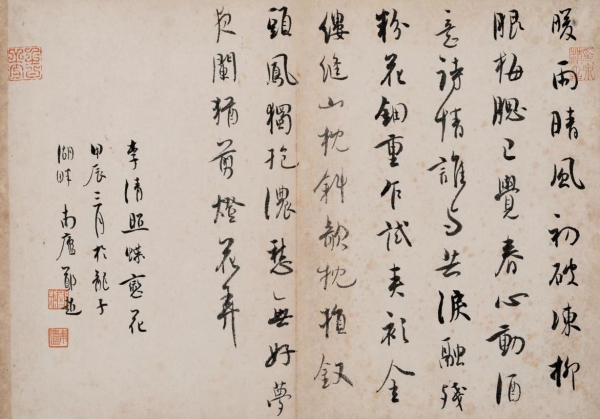 暖雨晴風初破凍柳
眼梅腮已覺春心動酒
意詩情誰与共淚融殘
粉花鈿重乍試夾衫金
縷縫山枕斜欹枕損釵
頭鳳獨抱濃愁無好夢
夜闌猶剪燈花弄
李清照蝶戀花
甲辰三月於龍子
湖畔 南廬鄭超